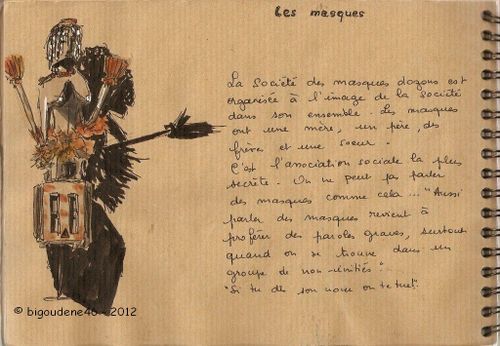 Les masques
La Société des masques dogons est
organisée à l'image de la société
dans son ensemble. Les masques
ont une mère, un père, des
frères et une soeur.
C'est l'association sociale la plus
secrète. On ne peut pas parler
des masques comme cela... "Aussi
parler des masques revient à
proférer des paroles graves, surtout
quand on se trouve dans un
groupe de non-initiés".
"Si tu dis son nom on te tue".
© bigoudene46 - 2012